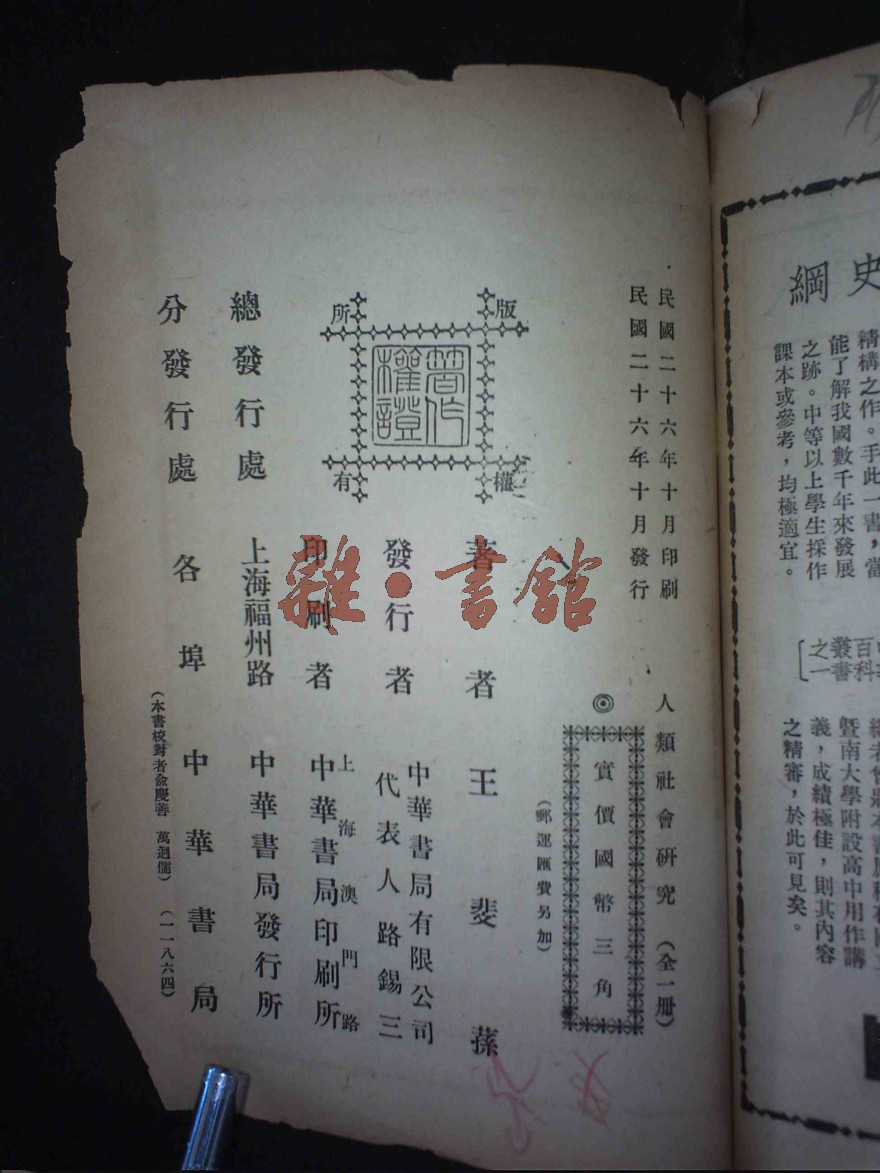 民國二十六年十月印刷
民國二十六年十月發行
人類社會研究(全一冊)
◎實價國幣三角
(郵運匯費另加)
版權所有
著作權證
著者 王斐蓀
發行者 中華書局有限公司
代表人 路錫三
印刷者 上海澳門路
中華書局印刷所
總發行處 上海福州路 中華書局發行所
分發行處 各埠中華書局
(本書校對者俞慶善 萬迴儒)
(一一八六四)
雜·書館
史綱
精構之作。手此一書,當
能了解我國數千年來發展
之跡。中等以上學生採作
課本或參考,均極適宜。
百科
叢書
之一
暨南大學附設高中用作講
義,成績極佳,則其內容
之精審,於此可見矣。